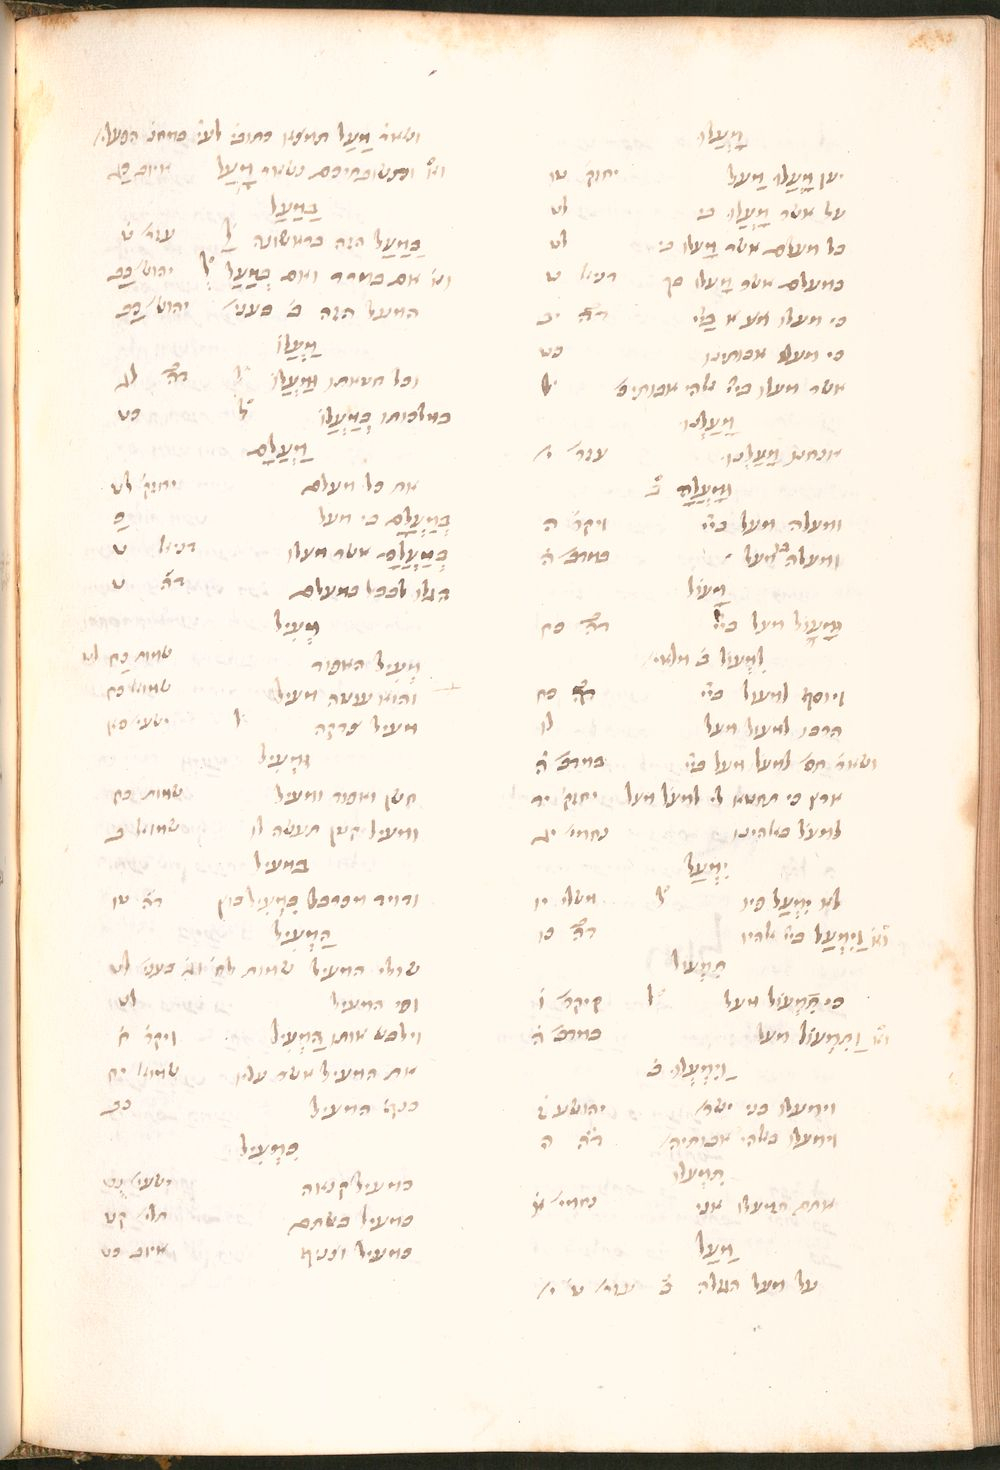 מָעֲלוּ
יען מָעֲלוּ מַעַל יחזק׳ טו
על אשר מָעֲלוּ בי לט
כל מעלם אשר מָעלו בי לט
במעלם אשר מָעלו בך דניאל ט
כי מעלו בי״י ד״ה יב
כי מעלו אבותינו כט
אשר מעלו בי״י אלהי אבותיהם ל
מָעַלְנוּ
אנחנו מָעַלְנוּ עזר׳ י
וּמָעֲלָה ב׳
ומעלה מעל בי״י ויקר׳ ה
ומעלה בו מעל במדב׳ ה
מָעוֹל
וּמָעוֹל מעל בי״י ד״ה כח
לִמְעוֹל ב׳ מלאי׳
ויוסף למעול בי״י ד״ה כח
הרבו למעול מעל לו
ושאר׳ חס׳ למעל מעל בי״י במדב׳ ה
ארץ כי תחטא לי למעל מעל יחזק׳ יד
למעל באלהינו נחמי׳ יג
יִמְעַל
לא יִמְעַל פיו ל׳ משלי יו
וא׳ וַיִּמְעַל בי״י אלהיו ד״ה כו
תִמְעוֹל
כי תִמְעוֹל מעל ל׳ ויקר׳ ה
וא׳ וַתִּמְעוֹל מעל במדב׳ ה
וַיִּמְעֲלוּ ב׳
וימעלו בני ישר׳ יהושע ז
וימעלו באלהי אבותיה׳ ד״ה ה
תִמְעֲלוּ
אתם תמעלו אני נחמי׳ א
מַעַל
על מעל הגולה ב׳ עזר׳ ט׳ י׳
ושאר׳ מַעַל תמצא כתובי׳ הפעל׳
וא׳ ותשובתיכם נשאר מָעַל איוב כא
בַּמַּעַל
בַּמַּעַל הזה בראשונה ל׳ עזר׳ ט
וא׳ אם במרד ואם בְּמַעַל ל׳ יהוש׳ כב
המעל הזה ב׳ בעני׳ יהוש׳ כב
מַעֲלוֹ
וכל חטאתו וּמַעֲלוֹ ל׳ ד״ה לג
במלכותו בְּמַעֲלוֹ ל׳ כט
מַעֲלָם
את כל מעלם יחזק׳ לט
בְּמַעֲלָם כי מעל כ
בְּמַעֲלָם אשר מעלו דניאל ט
הגלו לבבל במעלם ד״ה ט
מְעִיל
מְעִיל האפוד שמות כח לט
והוא עטה מעיל שמואל כח
מעיל צדקה ל׳ ישעי׳ סא
וּמְעִיל
חשן ואפוד ומעיל שמות כח
ומעיל קטן תעשה לו שמואל ב
במעיל
ודויד מכרבל בִּמְעִיל בוץ ד״ה טו
הַמְּעִיל
שולי המעיל שמות בעני׳ לט
ופי המעיל לט
וילבש אותו הַמְּעִיל ויקר׳ ח
את המעיל אשר עליו שמואל יח
כנף המעיל כב
כִּמְעִיל
כמעיל קנאה ישעי׳ נט
כמעיל בשתם תלי׳ קט
כמעיל וצניף איוב כט